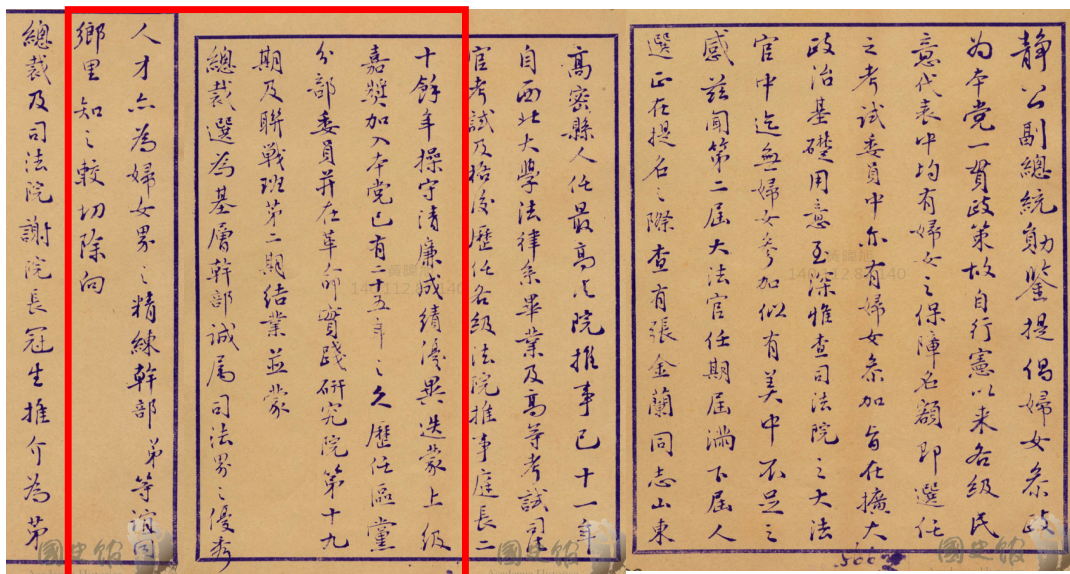 静公副總統勛鑒提倡婦女參政
為本党一貫政策故自行憲以来各级民
意代表中均有婦女之保障名額即選任
之考試委員中亦有婦女參加旨在擴大
政治基礎用意至深惟查司法院之大法
官中迄無婦女參加似有美中不足之
感茲聞第二屆大法官任期屆満下屆人
選正在提名之際查有張金蘭同志山東
高密縣人任最高法院推事已十一年
自西北大學法律系畢業及高等考試司法
官考試及格後歷任各級法院推事庭長二
十餘年操守清廉成績優異迭蒙上級
嘉獎加入本党已有二十五年之久歷任區黨
分部委員并在革命實踐研究院第十九
期及聯戰班第二期結業並蒙
總裁選為基層幹部誠屬司法界之優秀
人才亦為婦女界之精練幹部 弟等誼同
鄉里知之較切除向
總裁及司法院謝院長冠生推介為第
國史館
國史館
國史館
黃暐